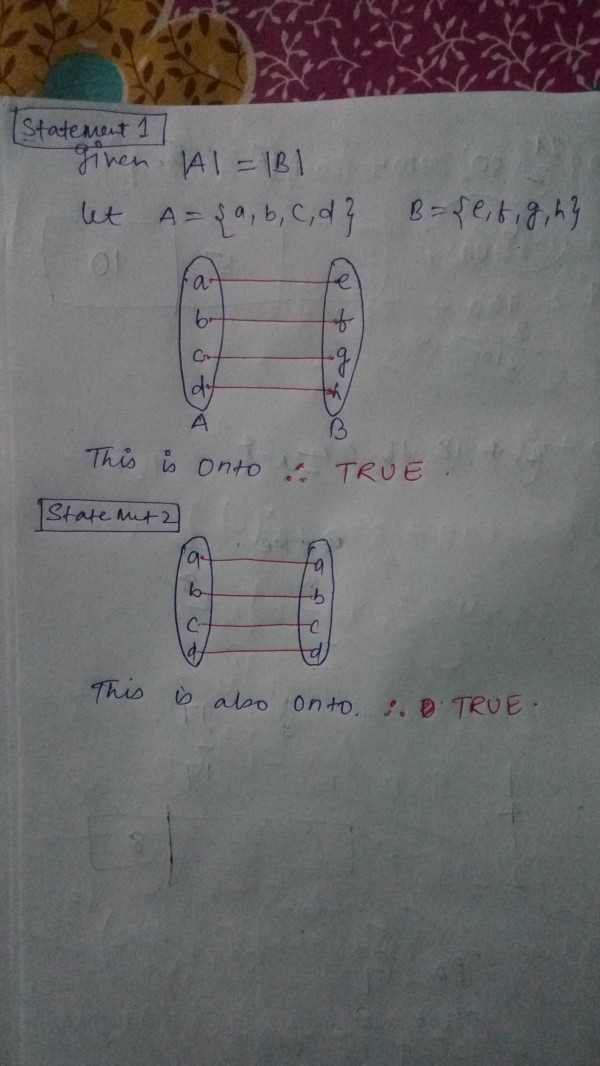 Statement 1
given |A| = |B|
let A = {a, b, c, d} B = {e, f, g, h}
a e
b f
c g
d h
A B
This is onto ∴ TRUE.
Statement 2
a a
b b
c c
d d
This is also onto. ∴ TRUE.